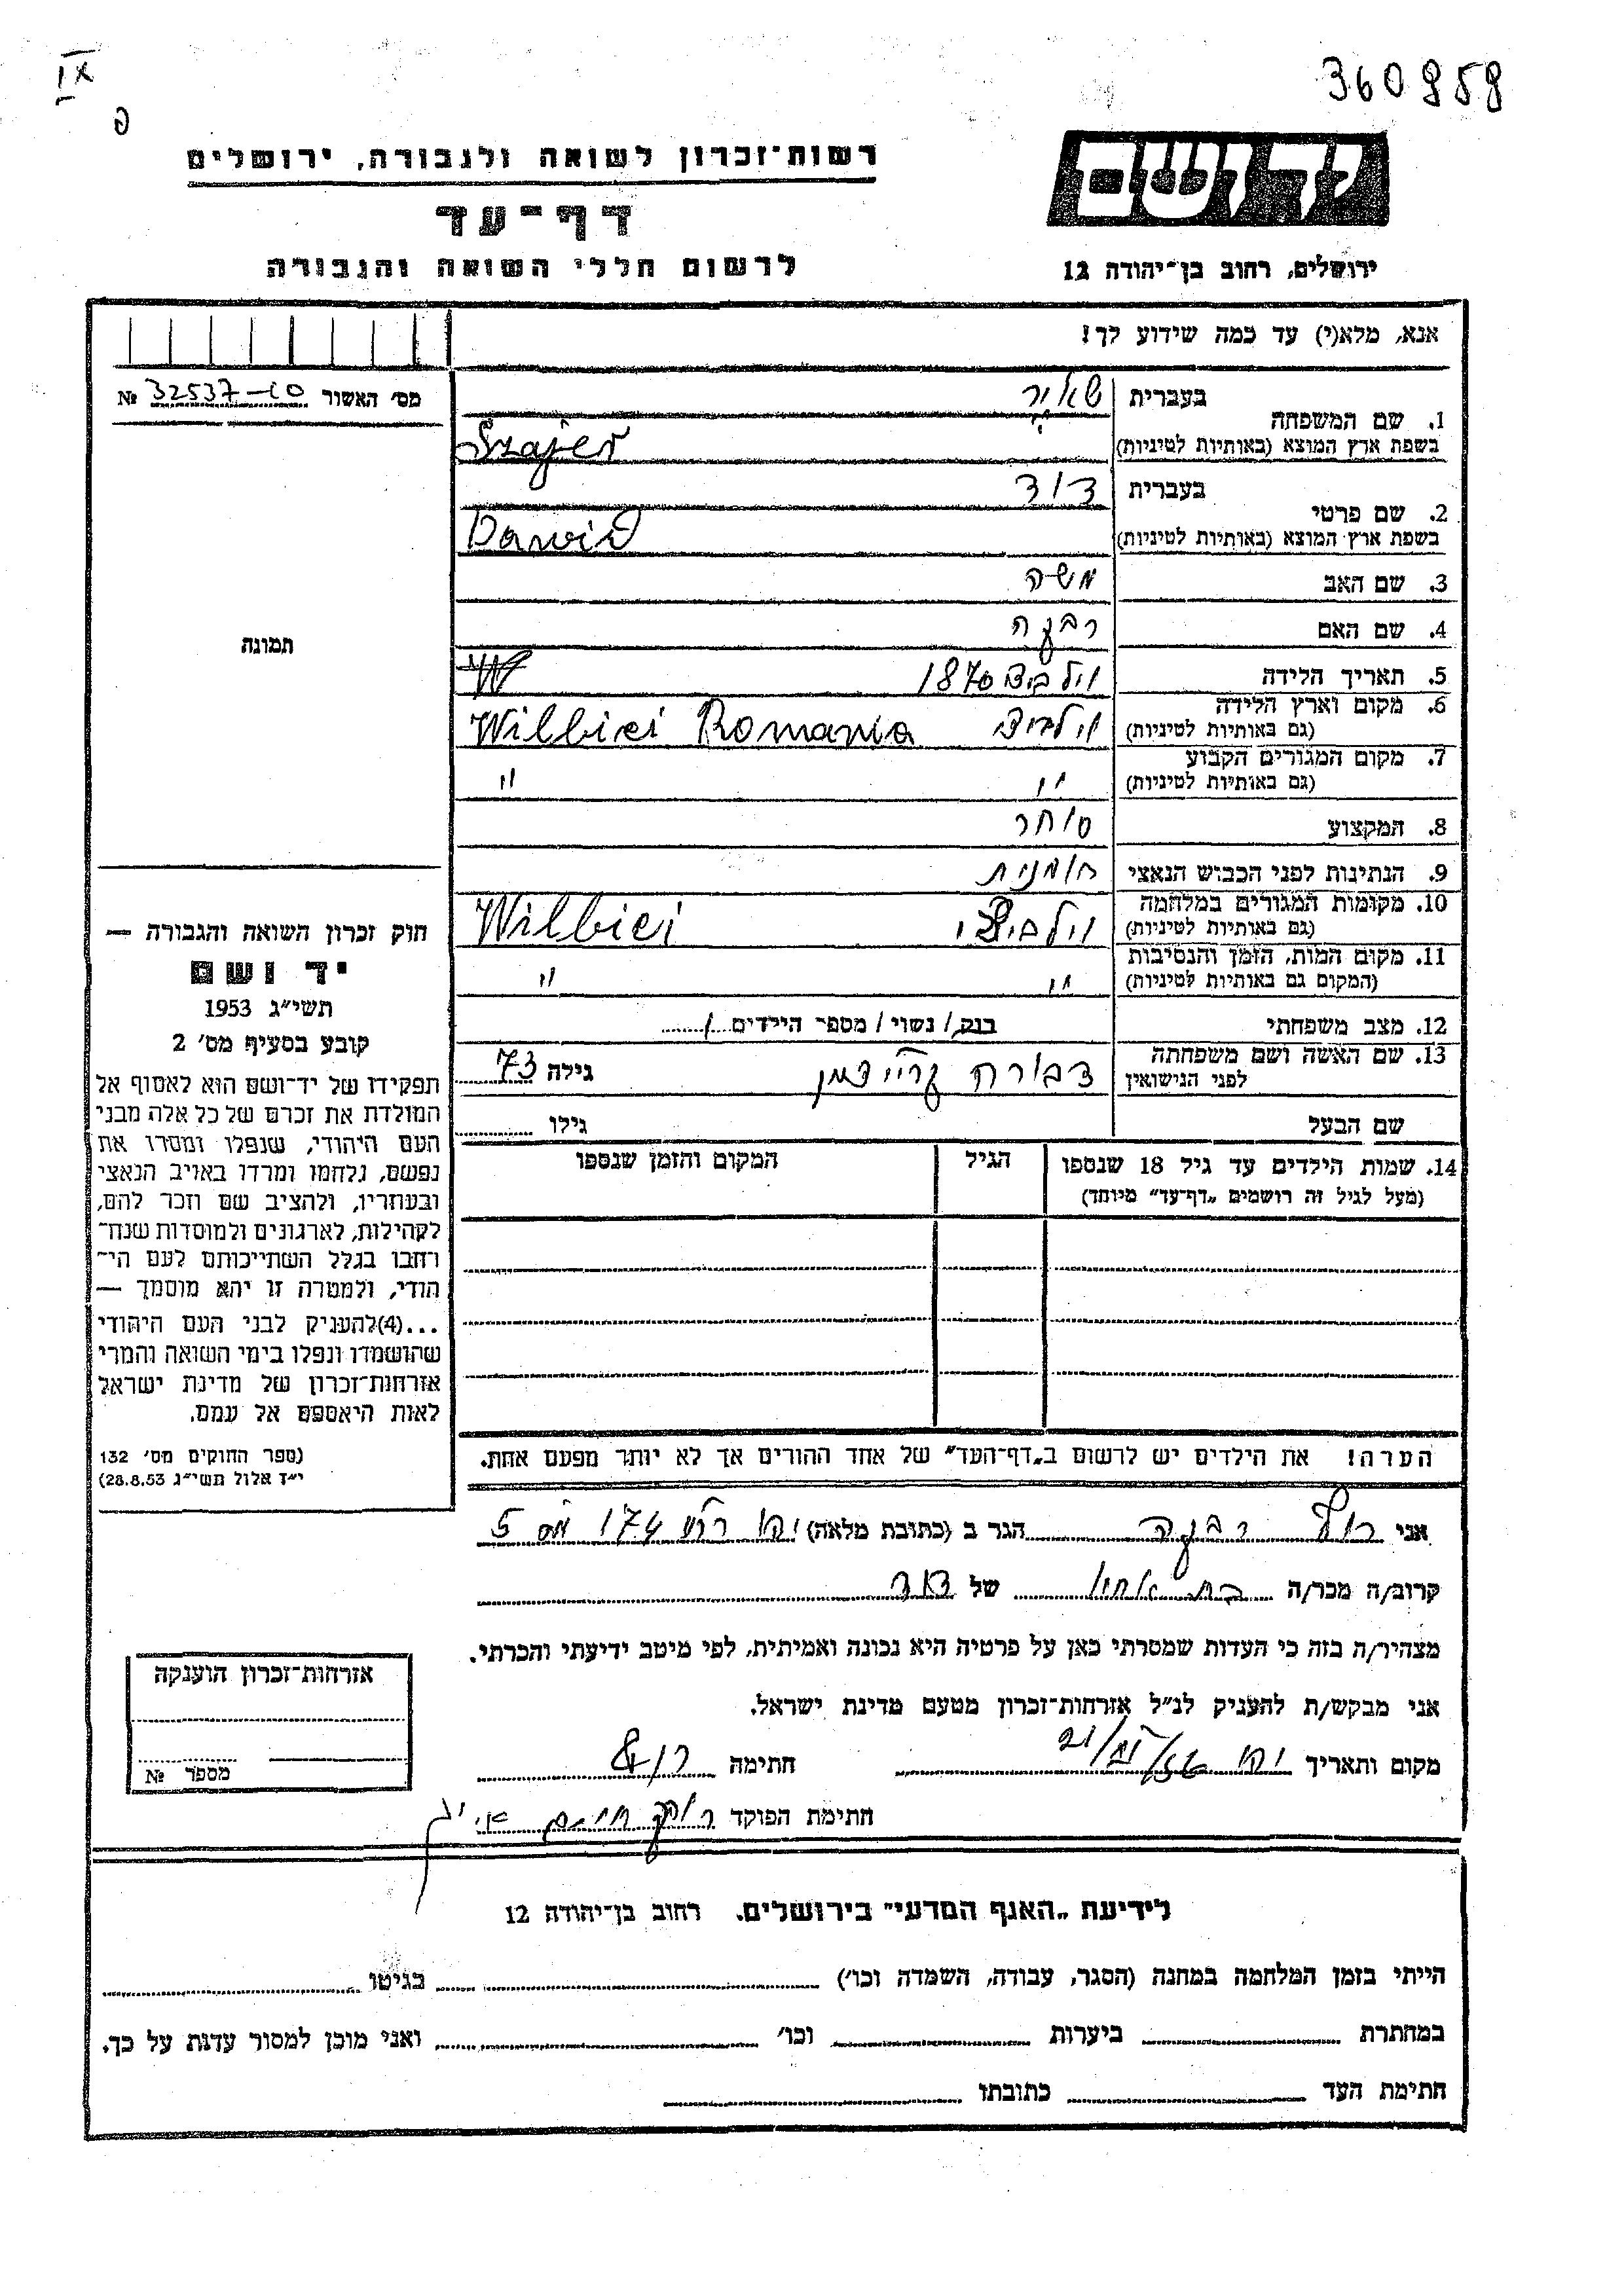 360959
IX
פ
יד ושם
רשות־זכרון לשואה ולגבורה, ירושלים
דף־עד
לרשום חללי השואה והגבורה
ירושלים, רחוב בן־יהודה 12
אנא, מלא(י) עד כמה שידוע לך!
מס' האשור 32537-10 №
תמונה
1. שם המשפחה
בעברית
בשפת ארץ המוצא (באותיות לטיניות) Szajer
2. שם פרטי
בעברית דוד
בשפת ארץ המוצא (באותיות לטיניות) Dawid
3. שם האב משה
4. שם האם רבקה
5. תאריך הלידה 1870
6. מקום וארץ הלידה
(גם באותיות לטיניות) Wilbiei Romania
7. מקום המגורים הקבוע
(גם באותיות לטיניות) " "
8. המקצוע סוחר
9. הנתינות לפני הכבוש הנאצי רומנית
10. מקומות המגורים במלחמה
(גם באותיות לטיניות) Wilbiei
11. מקום המות, הזמן והנסיבות
(המקום גם באותיות לטיניות) " "
12. מצב משפחתי רווק / נשוי / מספר הילדים
13. שם האשה ושם משפחתה
לפני הנישואין דבורה גילה 73
שם הבעל גילו
14. שמות הילדים עד גיל 18 שנספו
(מעל לגיל זה רושמים „דף־עד" מיוחד)
הגיל
המקום והזמן שנספו
הערה! את הילדים יש לרשום ב„דף־העד" של אחד ההורים אך לא יותר מפעם אחת.
חוק זכרון השואה והגבורה —
יד ושם
תשי"ג 1953
קובע בסעיף מס' 2
תפקידו של יד־ושם הוא לאסוף אל
המולדת את זכרם של כל אלה מבני
העם היהודי, שנפלו ומסרו את
נפשם, נלחמו ומרדו באויב הנאצי
ובעוזריו, ולהציב שם וזכר להם,
לקהילות, לארגונים ולמוסדות שנח־
רחבו בגלל השתייכותם לעם הי־
הודי, ולמטרה זו יהא מוסמך —
...(4)להעניק לבני העם היהודי
שהושמדו ונפלו בימי השואה והמרי
אזרחות־זכרון של מדינת ישראל
לאות היאספם אל עמם.
(ספר החוקים מס' 132
י"ז אלול תשי"ג 28.8.53)
אני רבקה הגר ב (כתובת מלאה) 174 5
קרוב/ה מכר/ה בת אחיו של דוד
מצהיר/ה בזה כי העדות שמסרתי כאן על פרטיה היא נכונה ואמיתית, לפי מיטב ידיעתי והכרתי.
אני מבקש/ת להעניק לנ"ל אזרחות־זכרון מטעם מדינת ישראל.
מקום ותאריך חתימה
חתימת הפוקד
אזרחות־זכרון הוענקה
מספר №
לידיעת „האגף המדעי" בירושלים. רחוב בן־יהודה 12
הייתי בזמן המלחמה במחנה (הסגר, עבודה, השמדה וכו') בגיטו
במחתרת ביערות וכו' ואני מוכן למסור עדות על כך.
חתימת העד כתובתו